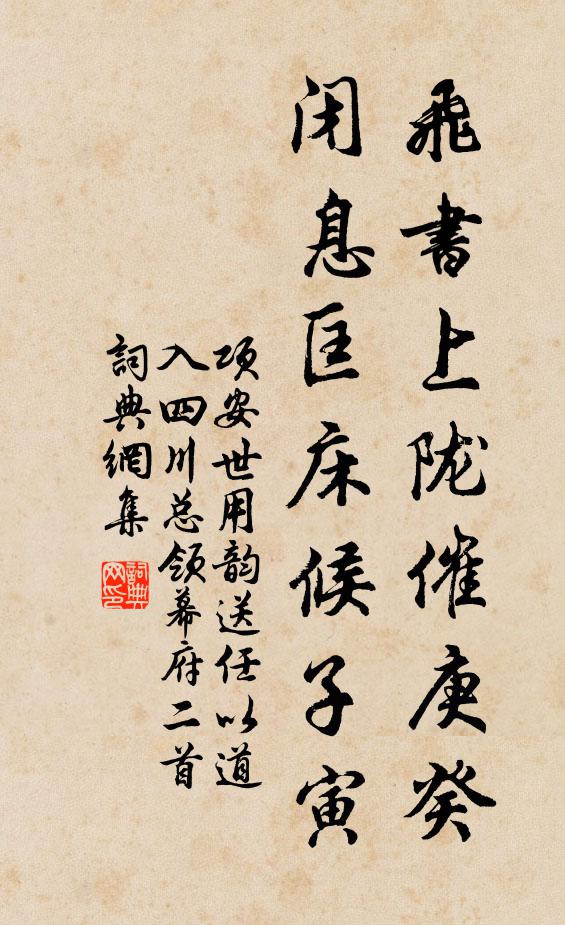 飛書上陇催庚癸
闭息匡床候子寅
项安世用韵送任以道
入四川总领幕府二首
詞典網集
詞典网印